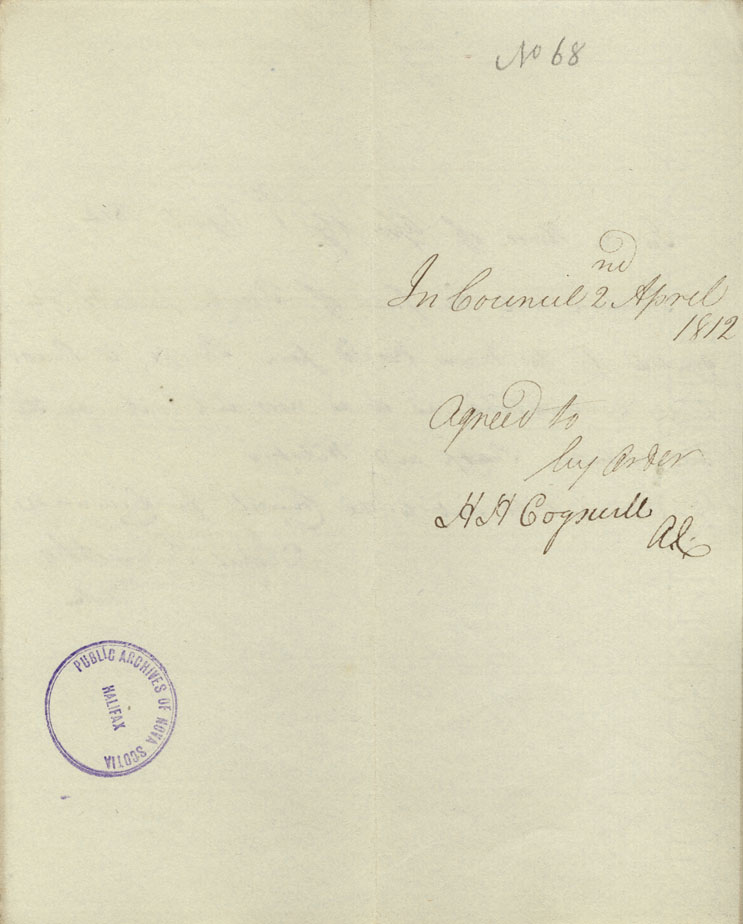 No 68
In Council 2nd April
1812
Agreed to
by order
H H Cogswell
PUBLIC ARCHIVES OF NOVA SCOTIA
HALIFAX